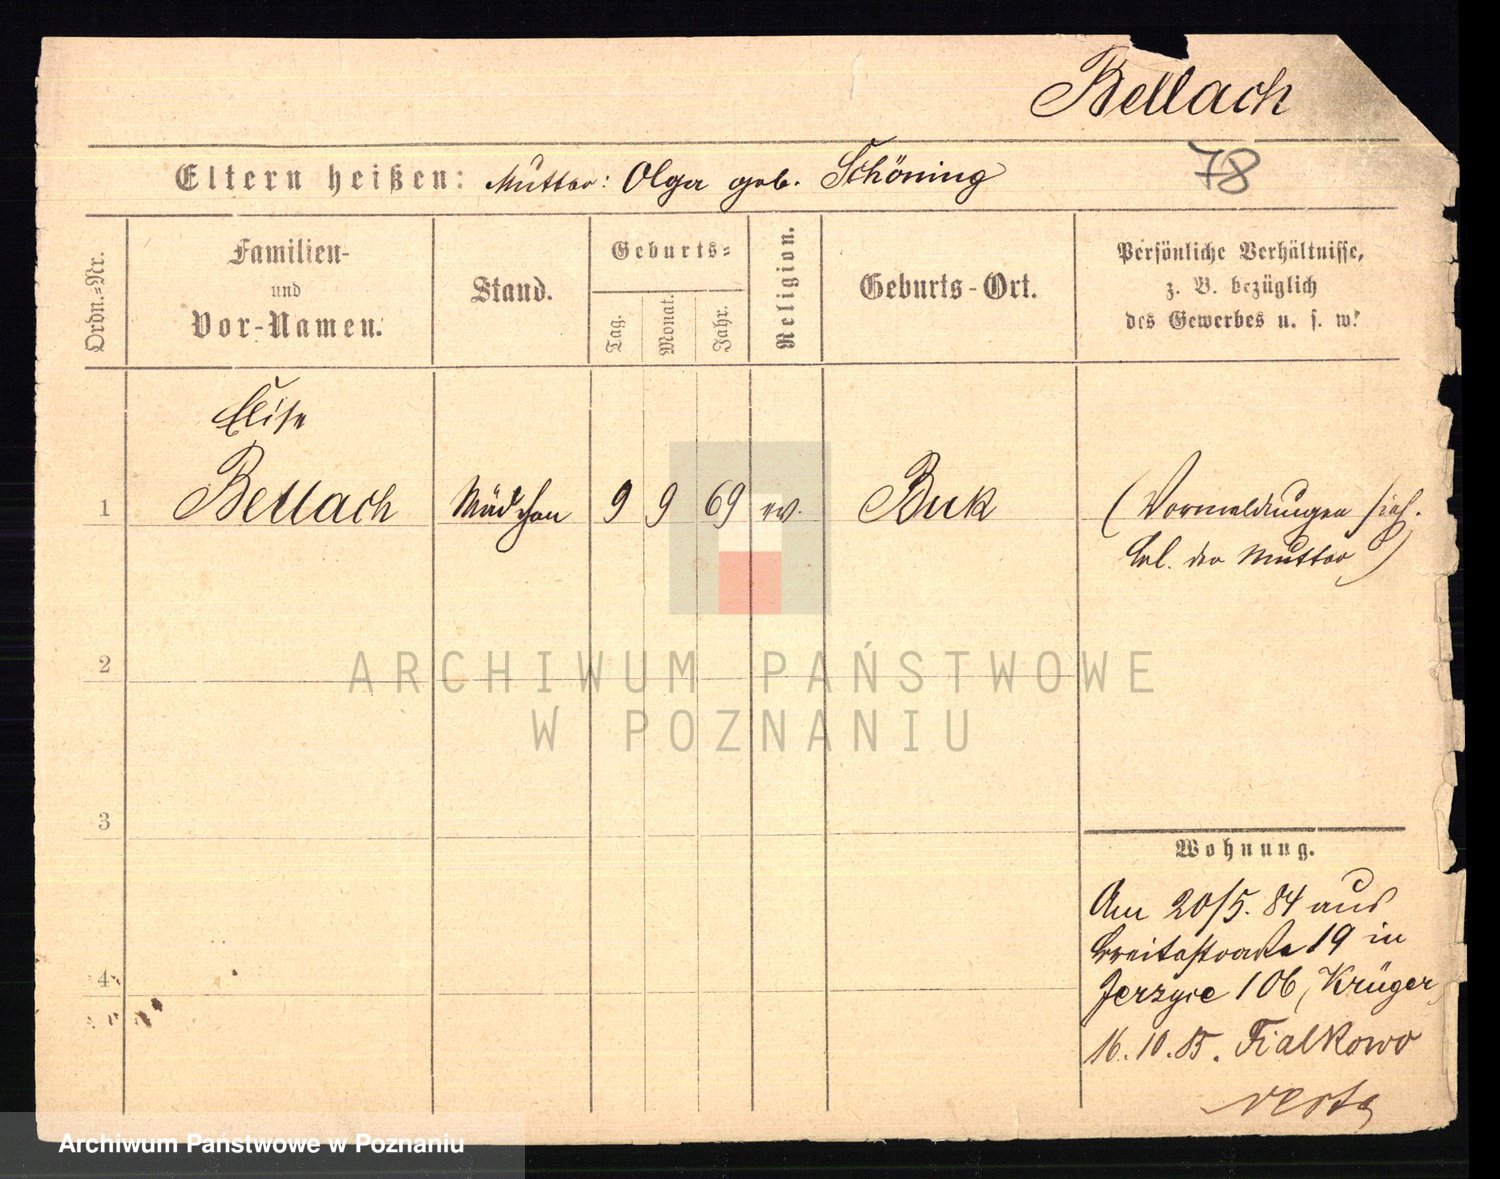 Bellach
78
Eltern heißen: Mutter: Olga geb. Schöning
Ordn.-Nr.
Familien-
und
Vor-Namen.
Stand.
Geburts-
Tag.
Monat.
Jahr.
Religion.
Geburts-Ort.
Persönliche Verhältnisse,
z. B. bezüglich
des Gewerbes u. s. w.
Elise
1 Bellach Mädchen 9 9 69 ev. Buk (Vormeldungen sieh.
Bl. der Mutter)
2
3
4
Wohnung.
Am 20/5. 84 aus
Breitestraße 19 in
Jerzyce 106, Krüger
16.10.85. Fialkowo
verte
ARCHIWUM PAŃSTWOWE
W POZNANIU
Archiwum Państwowe w Poznaniu